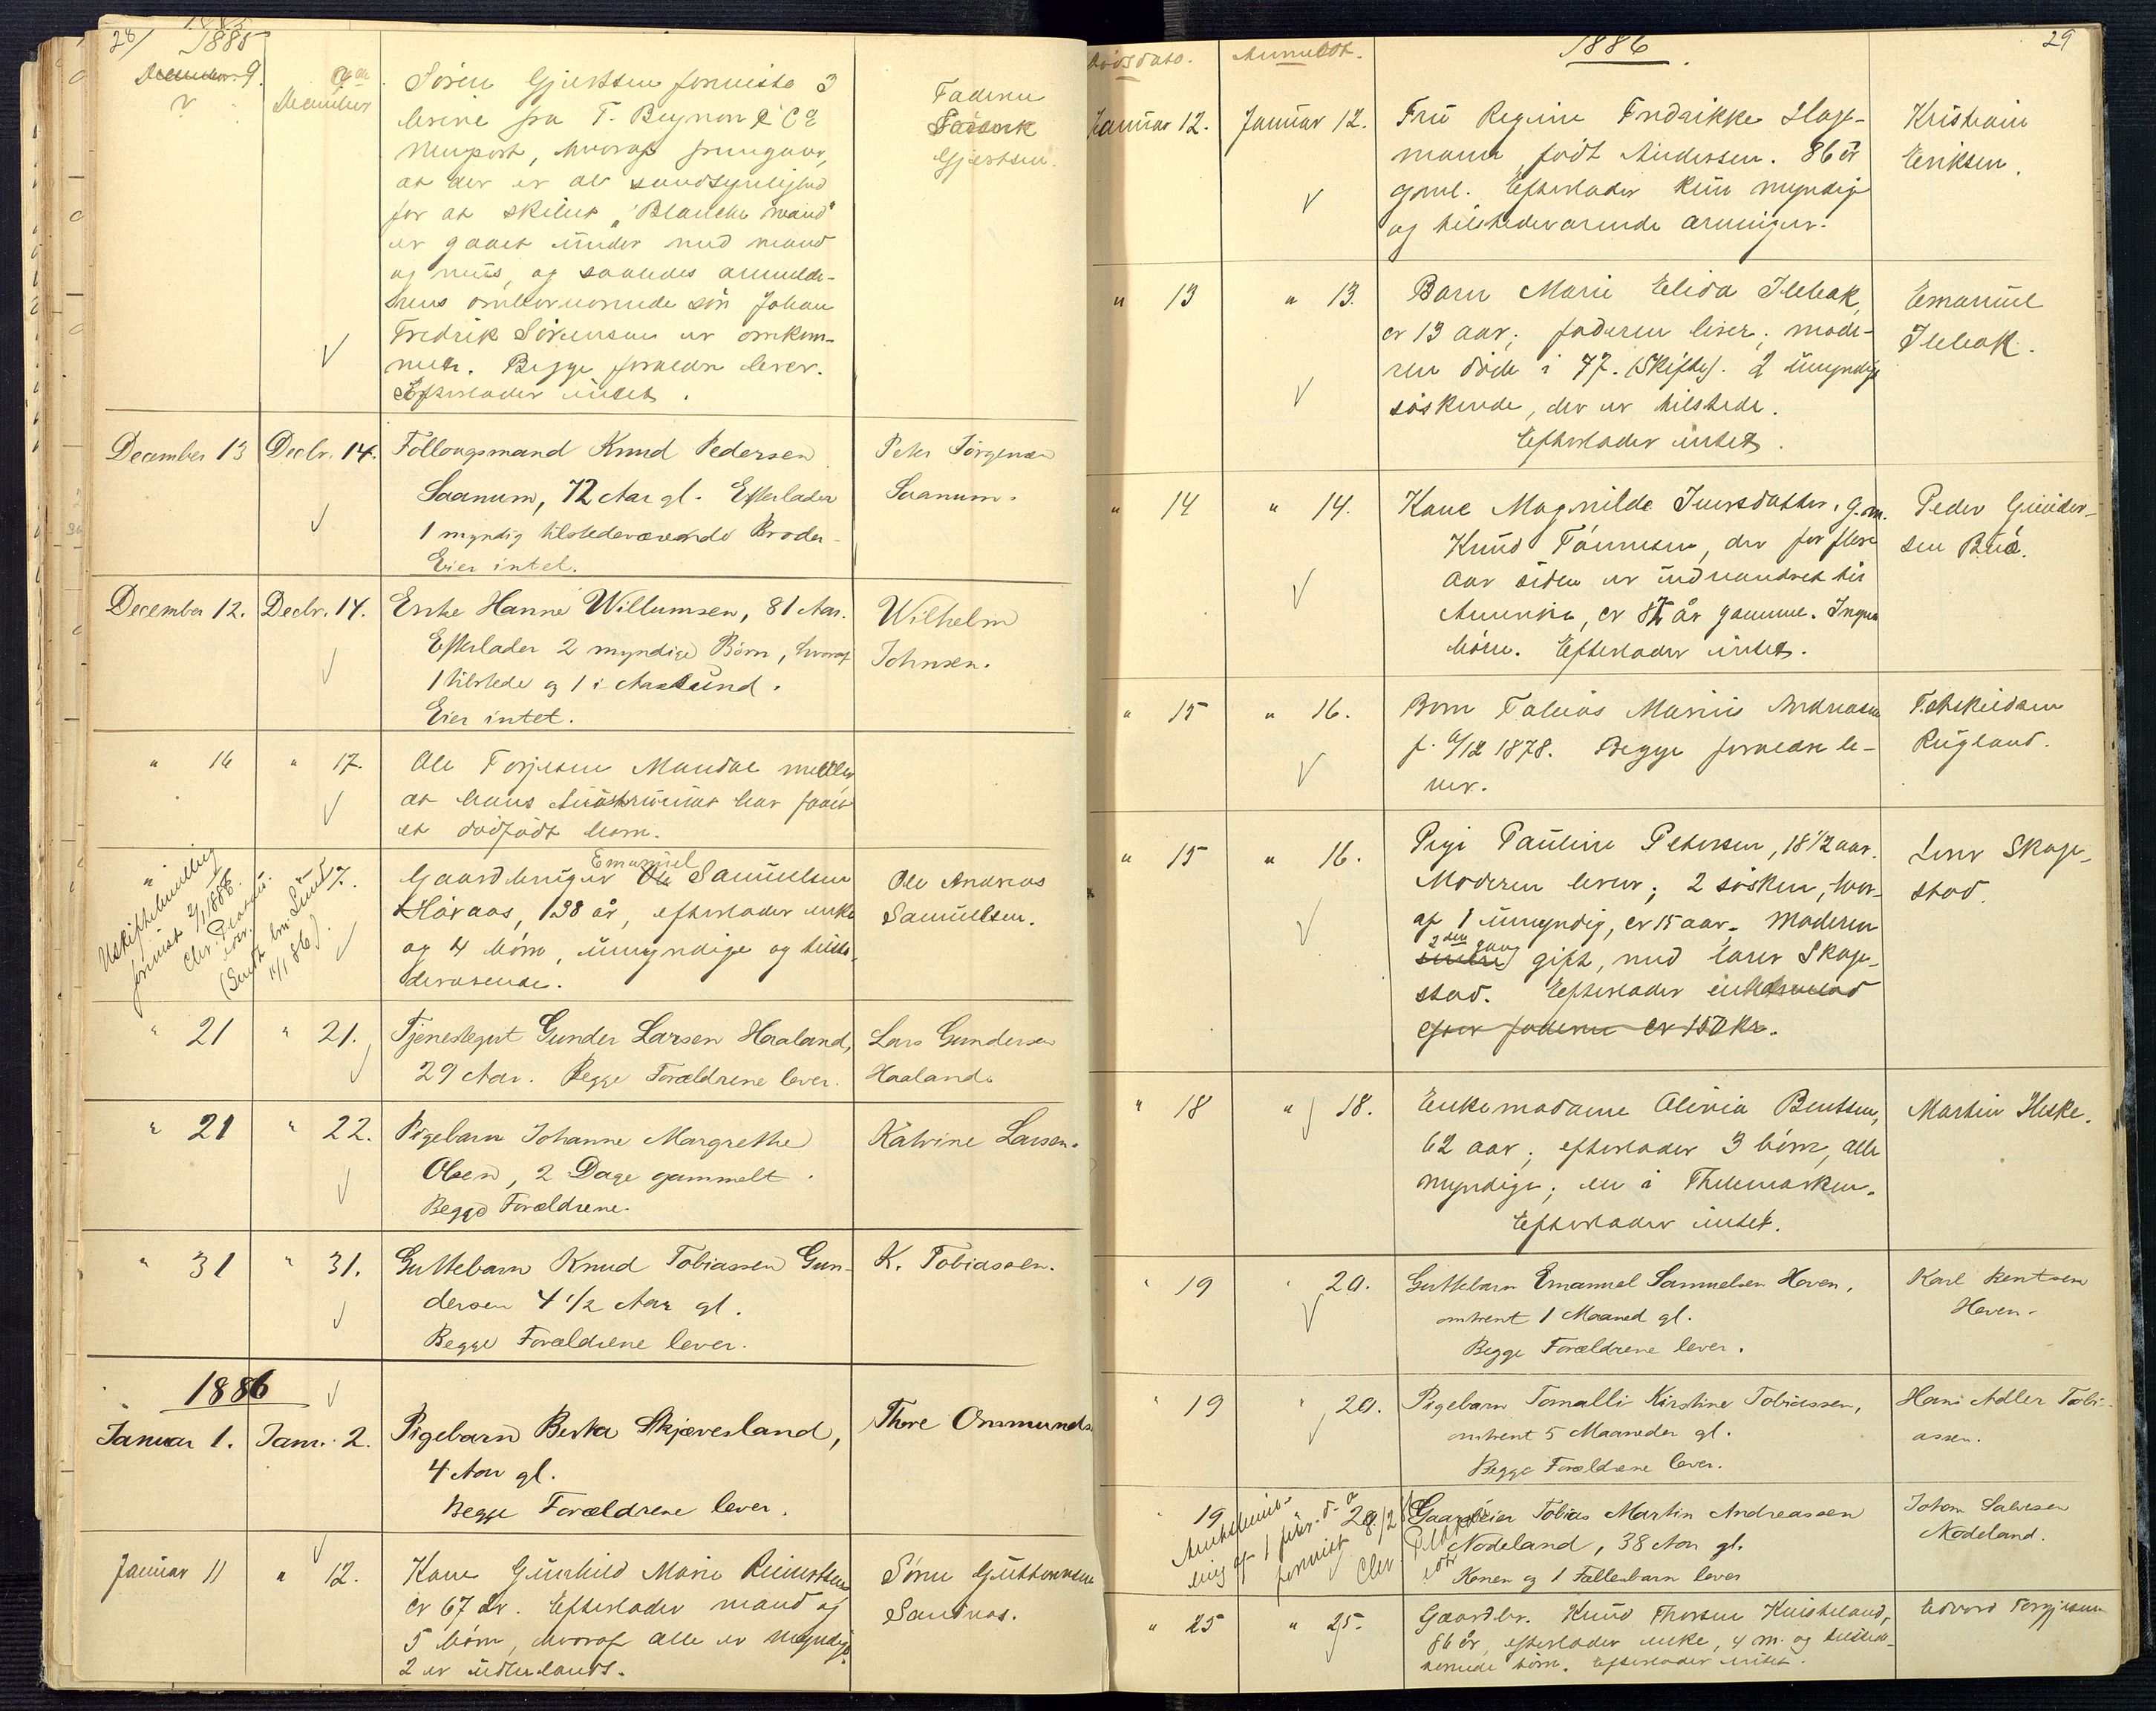 28/
1885
December 9.
December
Sören Gjertsen foreviste 3
breve fra T. Beynon & Co
Newport, hvoraf fremgaar,
at der er al sandsynlighed
for at skibet "Blanche
er gaaet under med mand
og mus, og saaledes anmelde-
rens ombordværende sön Johan
Fredrik Sörensen er omkom-
met. Begge forældre lever.
Efterlader intet.
Faderen
Gjertsen.
December 13
Decbr. 14.
Föllougsmand Knud Pedersen
Saanum, 72 Aar gl. Efterlader
1 myndig tilstedeværende Broder
Eier intet.
Peter Jörgensen
Saanum.
December 12.
Decbr. 14.
Enke Hanne Willumsen, 81 Aar.
Efterlader 2 myndige Börn, hvoraf
1 tilstede og 1 i Aalesund.
Eier intet.
Wilhelm
Johnsen.
" 16
" 17.
Ole Torjesen Mandal melder
at hans hustru har faaet
et dödfödt barn.
"
Uskiftebevilling
forevist 2/1 1886.
17.
Gaardbruger Ole Emanuel Samuelsen
Håraas, 38 år, efterlader enke
og 4 börn, umyndige og tilste-
deværende.
Ole Andreas
Samuelsen.
" 21
" 21.
Tjenestegut Gunder Larsen Haaland,
29 Aar. Begge Forældrene lever.
Lars Gundersen
Haaland.
" 21
" 22.
Pigebarn Johanne Margrethe
Olsen, 2 Dage gammelt.
Begge Forældrene.
Katrine Larsen.
" 31
" 31.
Guttebarn Knud Tobiassen Gun-
dersen 4 1/2 Aar gl.
Begge Forældrene lever.
K. Tobiassen.
1886
Januar 1.
Janr. 2.
Pigebarn Berta Skjævesland,
4 Aar gl.
Begge Forældrene lever.
Thore Ommunds
Januar 11
" 12.
Kone Gunhild Marie Reiertsen
er 67 år. Efterlader mand og
5 börn, hvoraf alle er myndige
2 er udenlands.
Sören Guttormsen
Sandnes.
29
Dödsdato.
Anmeldt.
1886
Januar 12.
Januar 12.
Fru Regine Fredrikke Hage-
mann, födt Andersen. 86 år
gml. Efterlader kun myndige
og tilstedeværende arvinger.
Kristian
Eriksen.
" 13
" 13.
Barn Marie Elida Ilebæk,
er 13 aar; faderen lever; mode-
ren döde i 77. (Skifte). 2 umyndige
söskende, der er tilstede.
Efterlader intet.
Emanuel
Ilebæk.
" 14
" 14.
Kone Magnilde Iversdatter, g.m.
Knud Tönnesen, der for flere
Aar siden er udvandret til
Amerika, er 87 år gammel. Ingen
börn. Efterlader intet.
Peder Gunder-
sen Buö.
" 15
" 16.
Barn Tobias Marius Andreasen
f. 6/12 1878. Begge forældre le-
ver.
T. Askildsen
Rugland.
" 15
" 16.
Pige Pauline Petersen, 18 1/2 aar.
Moderen lever; 2 sösken, hvor-
af 1 umyndig, er 15 aar. Moderen
2den gang gift, med Lars Skage-
stad. Efterlader
efter faderen er 150 kr.
Lars Skage-
stad.
" 18
" 18.
Enkemadame Olivia Bentsen,
62 aar; efterlader 3 börn, alle
myndige; en i Thelemarken.
Efterlader intet.
Martin Heske.
" 19
" 20.
Guttebarn Emanuel Samuelsen Haven,
omtrent 1 Maaned gl.
Begge Forældrene lever.
Karl Bentsen
Haven.
" 19
" 20.
Pigebarn Tomalli Kirstine Tobiassen,
omtrent 5 Maaneder gl.
Begge Forældrene lever.
Hans Adler Tobi-
assen.
" 19
" 20.
forevist
Gaardeier Tobias Martin Andreassen
Nodeland, 38 Aar gl.
Konen og 1 Fællesbarn lever
Johan Salvesen
Nodeland.
" 25
" 25.
Gaardbr. Knud Thorsen
86 år, efterlader enke, 4 m. og tilstede-
værende börn. Efterlader intet.
Edvard Torgjesen